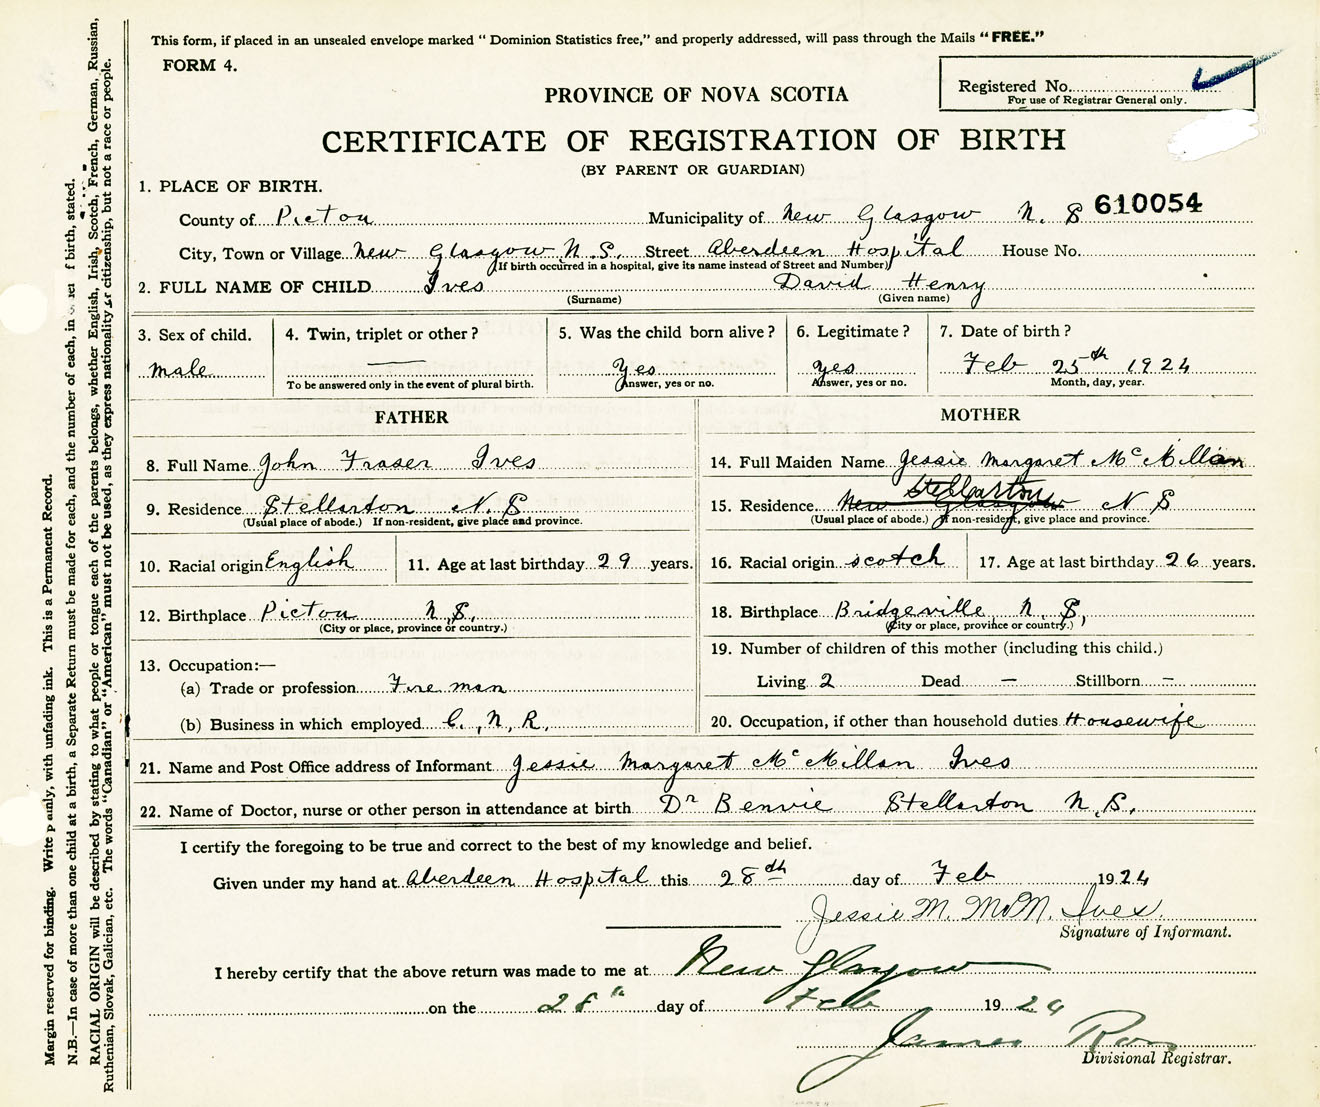 This form, if placed in an unsealed envelope marked "Dominion Statistics free," and properly addressed, will pass through the Mails "FREE."
FORM 4.
Registered No.
For use of Registrar General only.
PROVINCE OF NOVA SCOTIA
CERTIFICATE OF REGISTRATION OF BIRTH
(BY PARENT OR GUARDIAN)
1. PLACE OF BIRTH.
610054
County of Pictou Municipality of New Glasgow N. S
City, Town or Village New Glasgow N.S. Street Aberdeen Hospital House No.
(If birth occurred in a hospital, give its name instead of Street and Number)
2. FULL NAME OF CHILD Ives David Henry
(Surname) (Given name)
3. Sex of child. 4. Twin, triplet or other? 5. Was the child born alive? 6. Legitimate? 7. Date of birth?
male — Yes yes Feb 25th 1924
To be answered only in the event of plural birth. Answer, yes or no. Answer, yes or no. Month, day, year.
FATHER MOTHER
8. Full Name John Fraser Ives 14. Full Maiden Name Jessie Margaret McMillan
Stellarton
9. Residence Stellarton N. S 15. Residence New Glasgow N S
(Usual place of abode.) If non-resident, give place and province. (Usual place of abode.) If non-resident, give place and province.
10. Racial origin English 11. Age at last birthday 29 years. 16. Racial origin scotch 17. Age at last birthday 26 years.
12. Birthplace Pictou N.S. 18. Birthplace Bridgeville N. S,
(City or place, province or country.) (City or place, province or country.)
19. Number of children of this mother (including this child.)
13. Occupation:—
(a) Trade or profession Fireman Living 2 Dead — Stillborn —
(b) Business in which employed C.N.R. 20. Occupation, if other than household duties Housewife
21. Name and Post Office address of Informant Jessie Margaret McMillan Ives
22. Name of Doctor, nurse or other person in attendance at birth Dr Benvie Stellarton N.S.
I certify the foregoing to be true and correct to the best of my knowledge and belief.
Given under my hand at Aberdeen Hospital this 28th day of Feb 1924
Jessie M. McM. Ives.
Signature of Informant.
I hereby certify that the above return was made to me at New Glasgow
on the 28" day of Feb 1924
James
Divisional Registrar.
Margin reserved for binding. Write plainly, with unfading ink. This is a Permanent Record.
N.B.—In case of more than one child at a birth, a Separate Return must be made for each, and the number of each, in f birth, stated.
RACIAL ORIGIN will be described by stating to what people or tongue each of the parents belongs, whether English, Irish, Scotch, French, German, Russian,
Ruthenian, Slovak, Galician, etc. The words "Canadian" or "American" must not be used, as they express nationality or citizenship, but not a race or people.